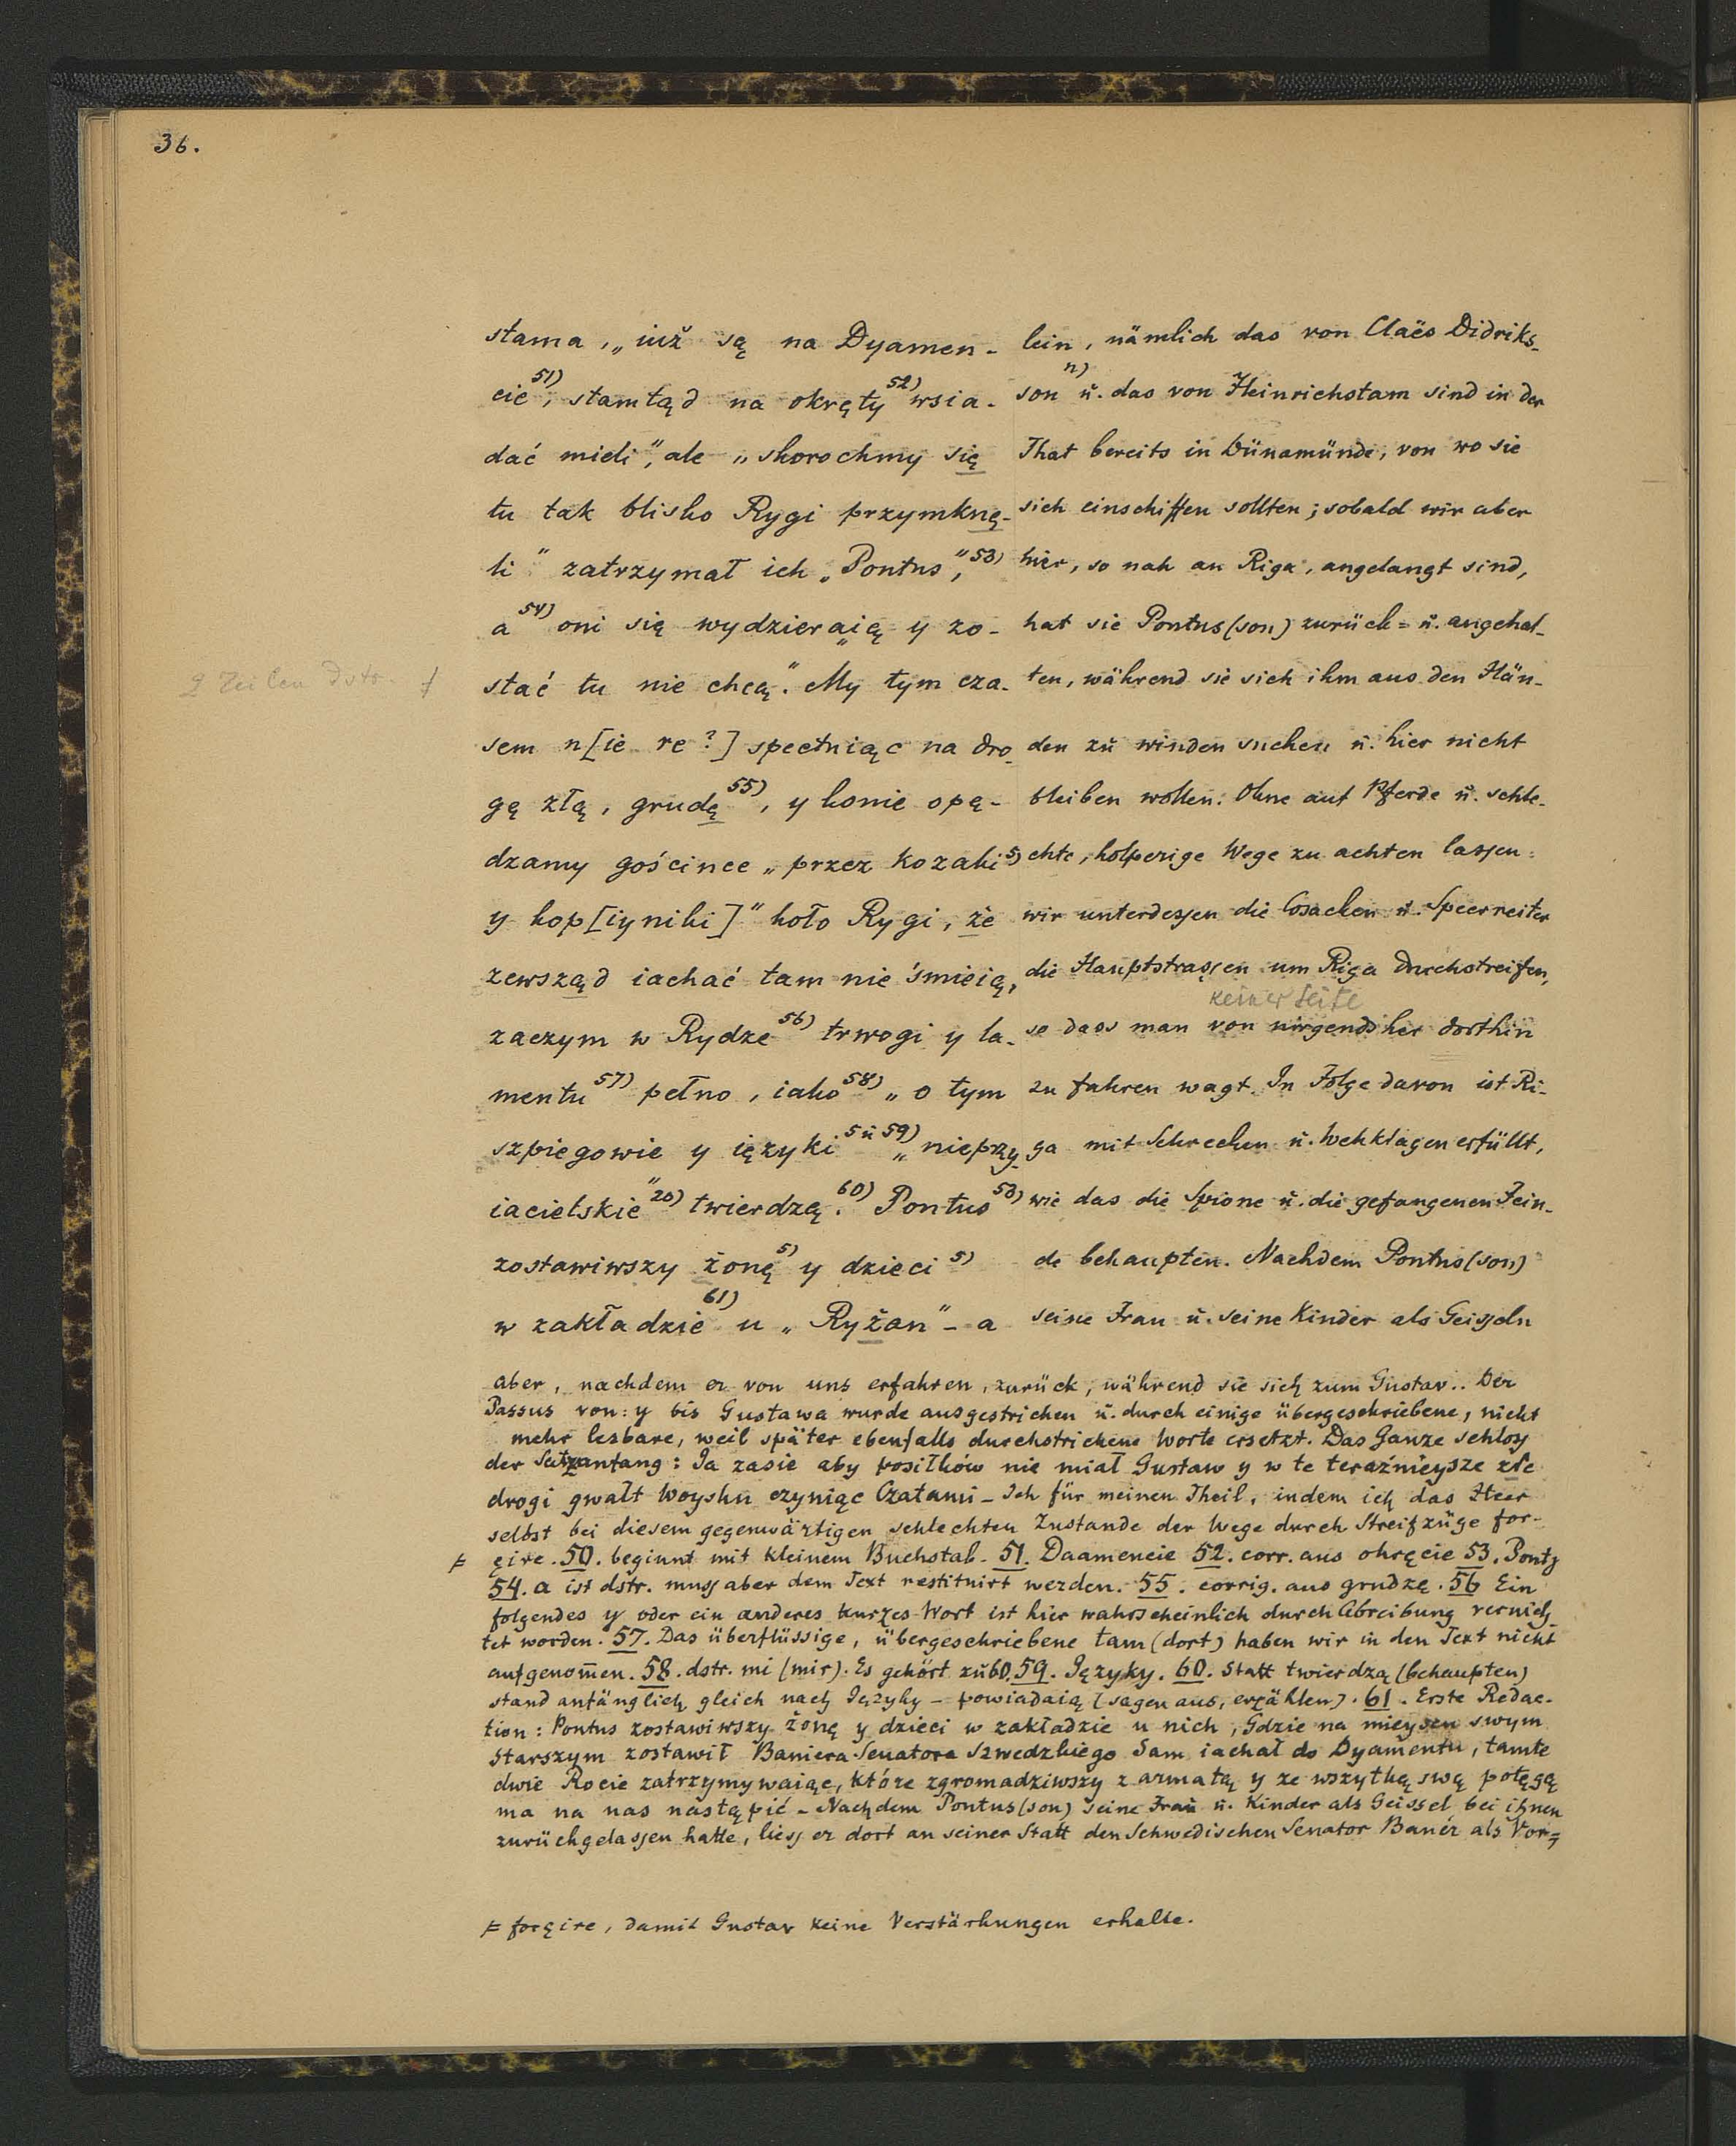 36.
stama, „iuż są na Dyamen-
cie 51), stamtąd na okręty 52) wsia-
dać mieli", ale „skorochmy się
tu tak blisko Rygi przymknę-
li" zatrzymał ich „Pontus", 53)
a 54) oni się wydzieraią y zo-
stać tu nie chcą". My tym cza-
sem n[ie re?] spectuiąc na dro-
gę złą, grudę 55), y konie opę-
dzamy goścince „przez kozaki 5)
y kop[iyniki]" koło Rygi, że
zewsząd iachać tam nie śmieią,
zaczym w Rydze 56) trwogi y la-
mentu 57) pełno, iako 58) „o tym
szpiegowie y ięzyki 5 u 59) „nieprzy-
iacielskie" 20) twierdzą. 60) Pontus 53)
zostawiwszy żonę 5) y dzieci 5)
w zakładzie 61) u „Ryżan" - a
lein, nämlich das von Claës Didriks-
son n) u. das von Heinrichstam sind in der
That bereits in Dünamünde, von wo sie
sich einschiffen sollten; sobald wir aber
hier, so nah an Riga, angelangt sind,
hat sie Pontus(son) zurück= u. angehal-
ten, während sie sich ihm aus den Hän-
den zu winden suchen u. hier nicht
bleiben wollen. Ohne auf Pferde u. schle-
chte, holperige Wege zu achten lassen
wir unterdessen die Cosacken u. Speerreiter
die Hauptstrassen um Riga durchstreifen,
keiner Seite
so dass man von nirgends her dorthin
zu fahren wagt. In Folge davon ist Ri-
ga mit Schrecken u. Wehklagen erfüllt,
wie das die Spione u. die gefangenen Fein-
de behaupten. Nachdem Pontus(son)
seine Frau u. seine Kinder als Geisseln
2 Zeilen dstr. ≠
aber, nachdem er von uns erfahren, zurück, während sie sich zum Gustav.. Der
Passus von: y bis Gustawa wurde ausgestrichen u. durch einige übergeschriebene, nicht
mehr lesbare, weil später ebenfalls durchstrichene Worte ersetzt. Das Ganze schloss
der Satzanfang: Ja zasie aby posiłków nie miał Gustaw y w te teraźnieysze złe
drogi gwałt Woysku czyniąc Czatami - Ich für meinen Theil, indem ich das Heer
selbst bei diesem gegenwärtigen schlechten Zustande der Wege durch Streifzüge for-
≠ çire. 50. beginnt mit kleinem Buchstab. 51. Daamencie 52. corr. aus okręcie 53. Pontę
54. a ist dstr. muss aber dem Text restituirt werden. 55. corrig. aus grudzę. 56 Ein
folgendes y oder ein anderes kurzes Wort ist hier wahrscheinlich durch Abreibung vernich-
tet worden. 57. Das überflüssige, übergeschriebene tam (dort) haben wir in den Text nicht
aufgenom̄en. 58. dstr. mi (mir). Es gehört zu 60. 59. Języky. 60. Statt twierdzą (behaupten)
stand anfänglich gleich nach Języky - powiadaią (sagen aus, erzählen). 61. Erste Redac-
tion: Pontus zostawiwszy żonę y dzieci w zakładzie u nich, Gdzie na mieyscu swym
Starszym zostawił Baniera Senatora Szwedzkiego Sam iachał do Dyamentu, tamte
dwie Rocie zatrzymywaiąc, które zgromadziwszy z armatą y ze wszytką swą potęgą
ma na nas nastąpić - Nachdem Pontus(son) seine Frau u. Kinder als Geissel bei ihnen
zurückgelassen hatte, liess er dort an seiner Statt den Schwedischen Senator Banér als Vor=
≠ forçire, damit Gustav keine Verstärkungen erhalte.